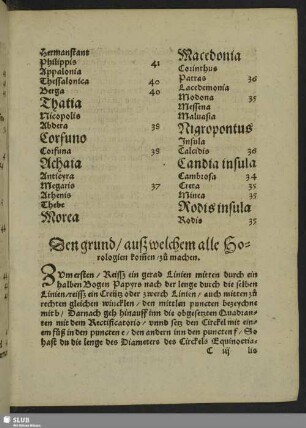 Hermanstant
Philippis 41
Appalonia
Thessalonica 40
Berga 40
Thatia
Nicopolis
Abdera 38
Corfuno
Corfuna 38
Achaia
Anticyra
Megaris 37
Athenis
Thebe
Morea
Macedonia
Corinthus
Patras 36
Lacedemonia
Modona 35
Messena
Maluasia
Nigropontus
Insula
Calcidis 36
Candia insula
Cambrosa 34
Creta 35
Minea 35
Rodis insula
Rodis 35
Den grund/ auß welchem alle Ho-
rologien komen/ zů machen.
ZOm ersten/ Reiss ein gerad Linien mitten durch ein
halben Bogen Papyrs nach der lenge durch die selben
Linien/ reiss ein Creütz oder zwerch Linien/ auch mitten zů
rechten gleichen wincklen/ den mittlen puncten bezeychne
mit b/ Darnach geh hinauff inn die obgesetzten Quadran-
ten mit dem Rectificatorio/ vnnd setz den Circkel mit ein-
em fůß in den puncten e/ den andern inn den puncten f/ So
hast du die lenge des Diameters des Circkels Equinoctia-
C iij lis
SLUB